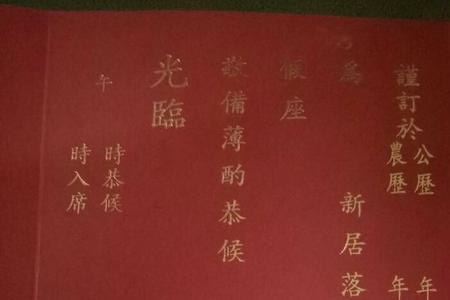 謹訂於公歷 年
農歷 年
為 新居落
假座
敬備薄酌恭候
光臨
午 時恭候
時入席